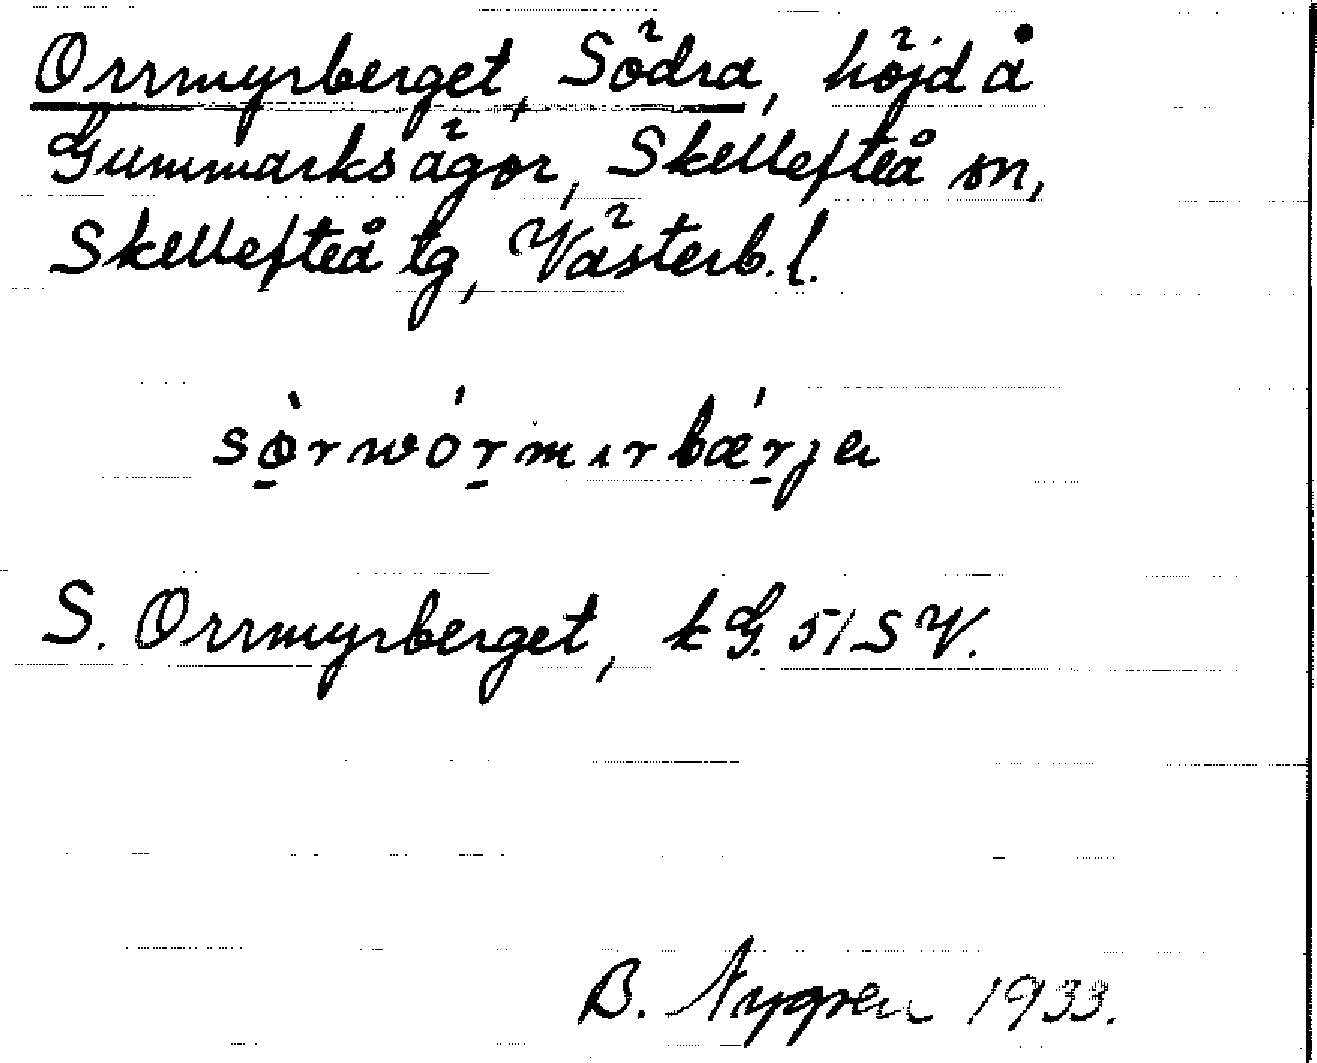 Orrmyrberget, Södra, höjd å
Gummarks ägor, Skellefteå sn,
Skellefteå tg, Västerb. l.
sø̱̀rwór̠mırbǽr̠ȷa
S. Orrmyrberget, k G. 51 S V.
B. Nygren 1933.